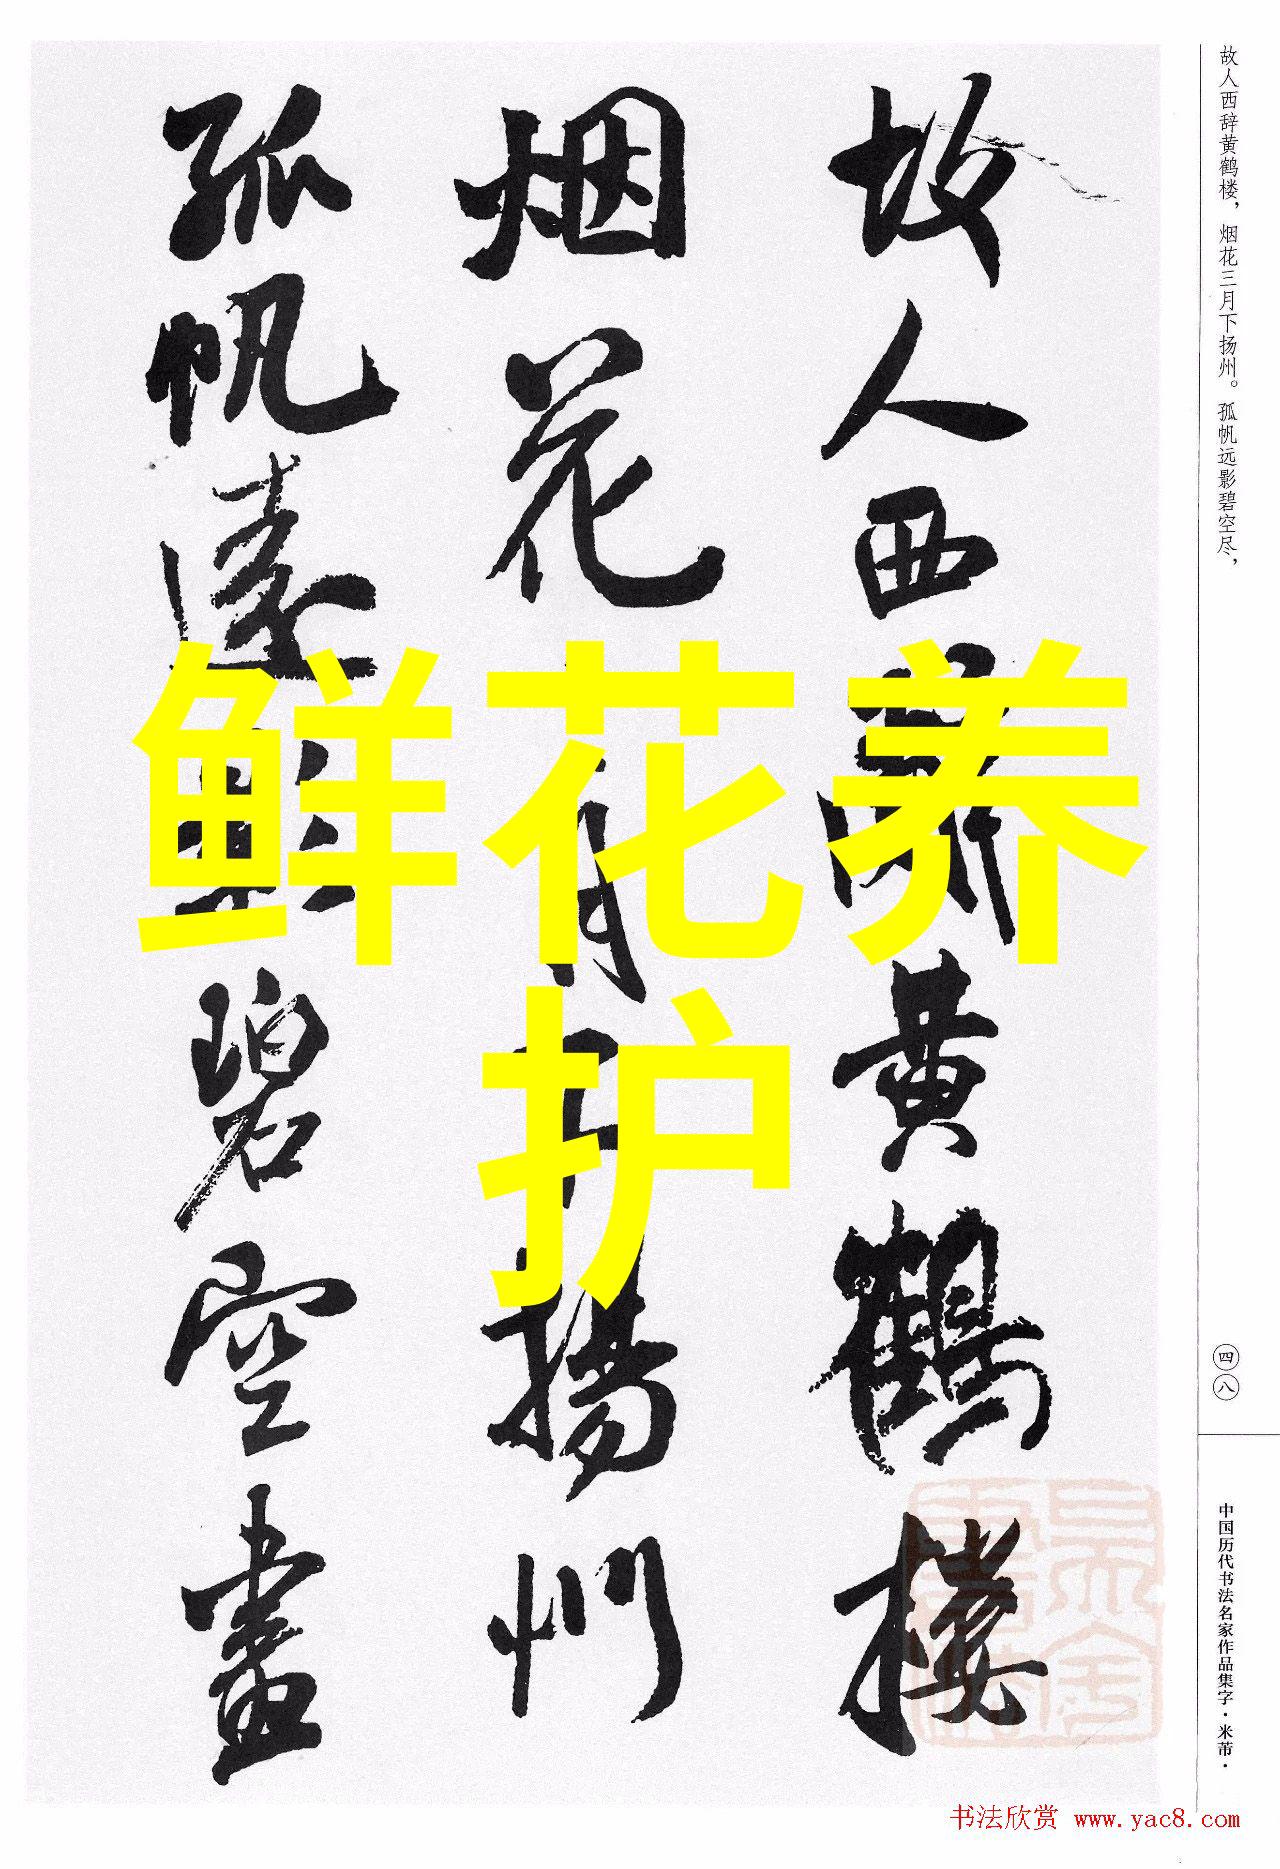 故人西辞黄鹤楼，烟花三月下扬州。孤帆远影碧空尽，
故人西辭黄鶴樓
烟花三月下揚州
孤帆遠影碧空盡
鲜花养
护
四八
中国历代书法名家作品集字·米芾·
书法欣赏 www.yac8.com